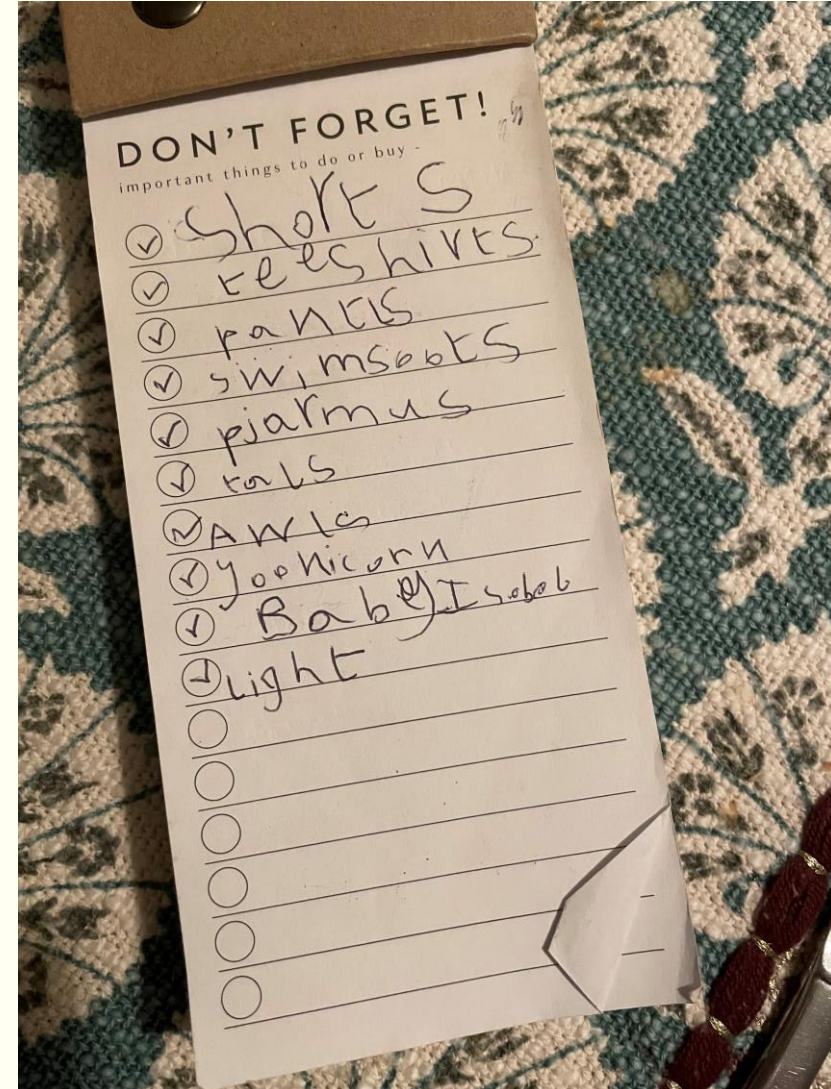 DON'T FORGET!
important things to do or buy -
Short S
teeshirts
pants
swimsoots
pjarmus
tols
Awls
yoonicorn
Baby Isobob
light